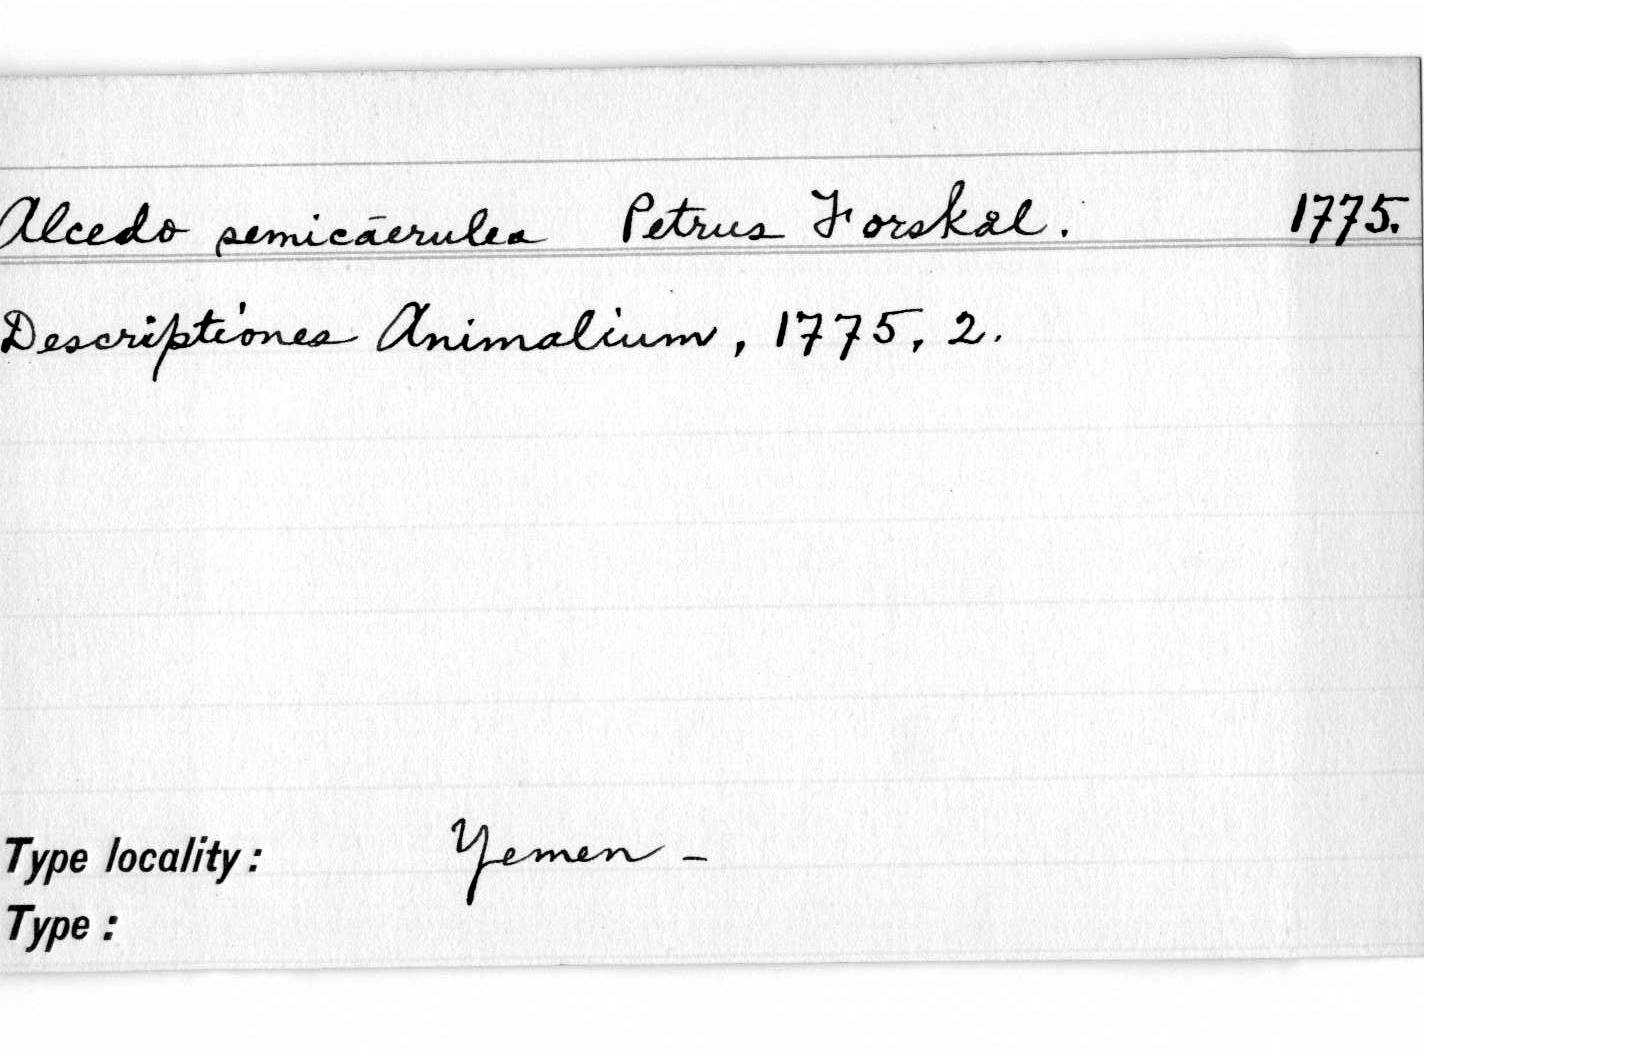 Alcedo semicāerulea Petrus Forskål. 1775.
Descriptiones Animalium, 1775, 2.
Type locality: Yemen -
Type: